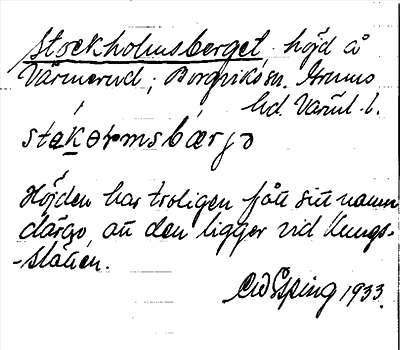 Stockholmsberget, höjd å
Värmerud, Borgviks sn. Grums
hd. Värml. l.
Höjden har troligen fått sitt namn
därav, att den ligger vid Kungs-
-slätten.
1933.